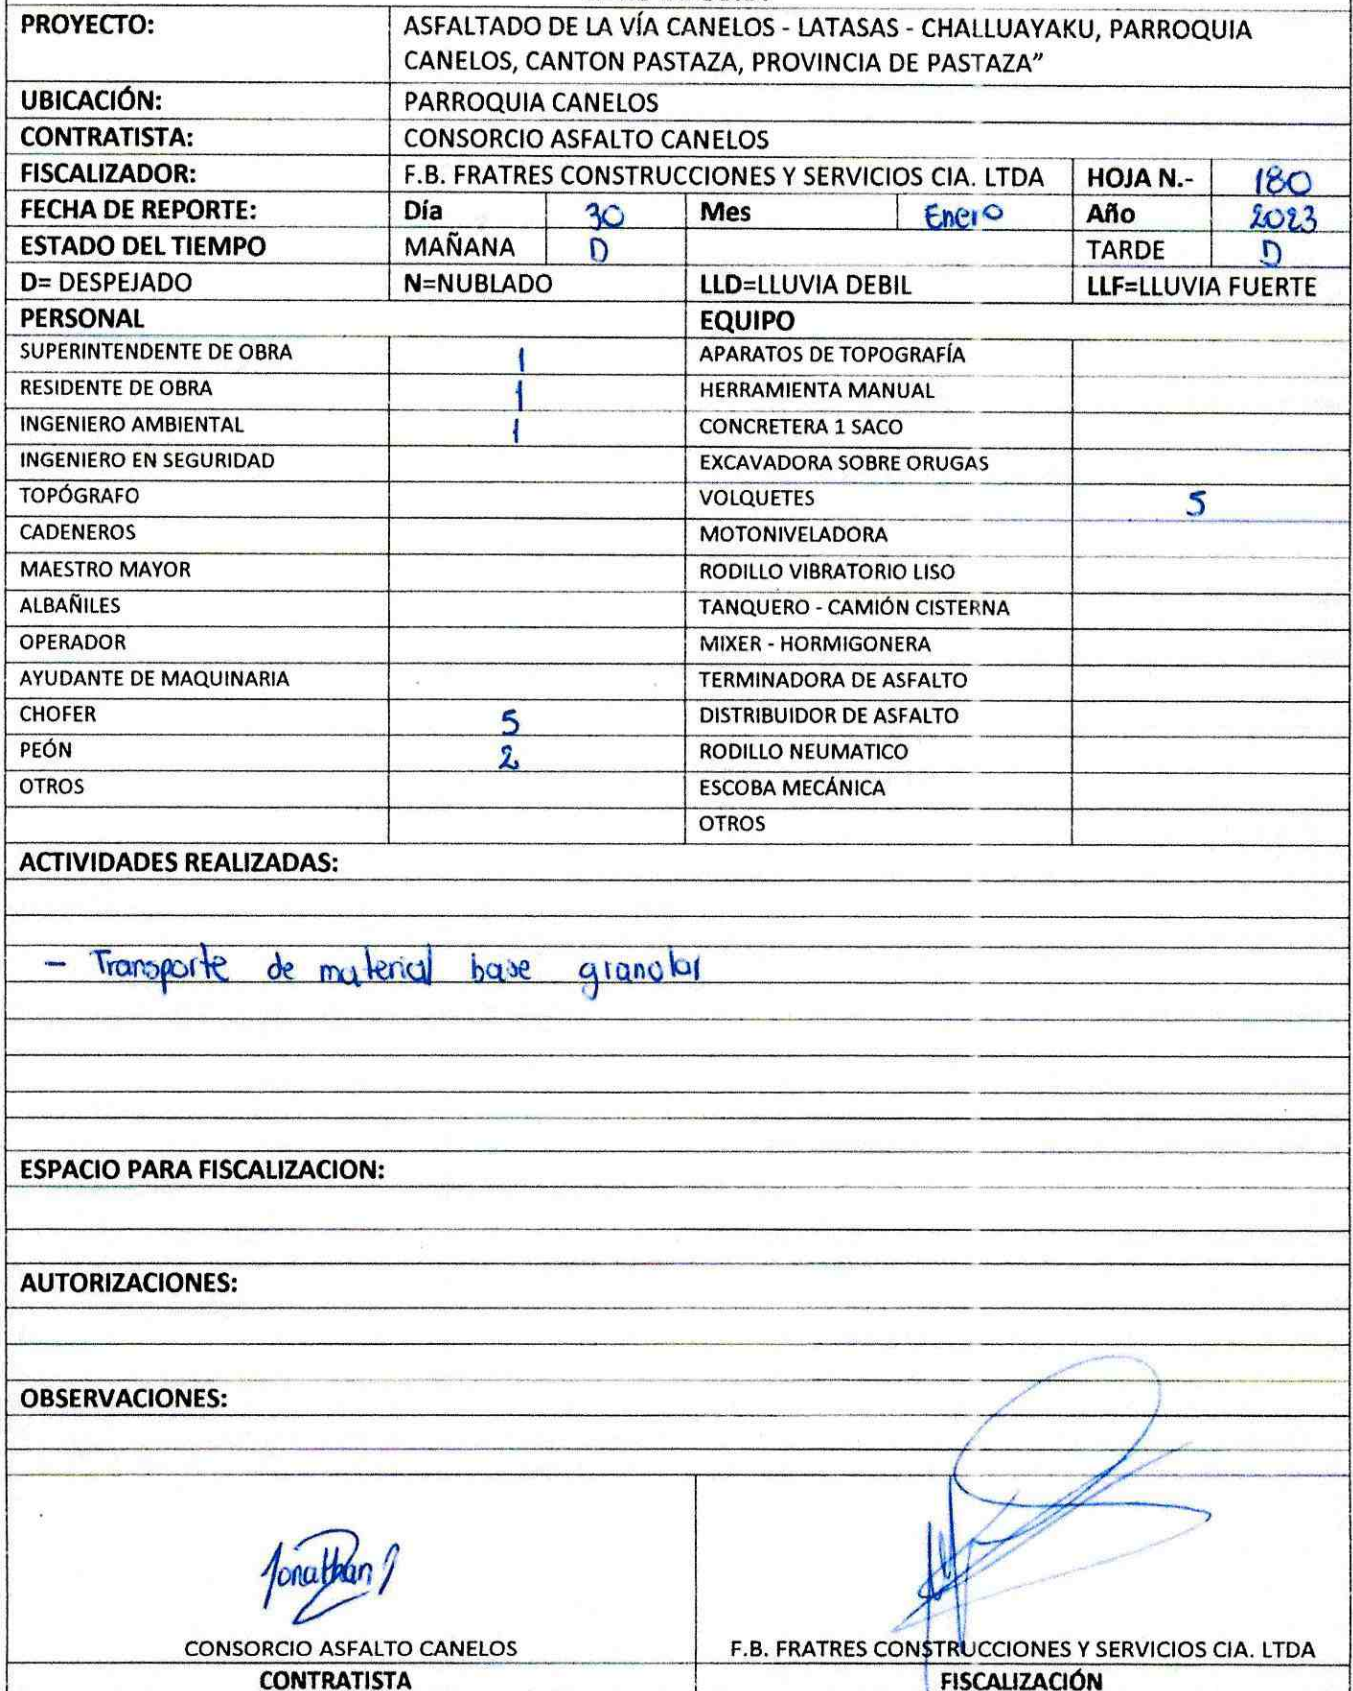 PROYECTO: ASFALTADO DE LA VÍA CANELOS - LATASAS - CHALLUAYAKU, PARROQUIA
CANELOS, CANTON PASTAZA, PROVINCIA DE PASTAZA”
UBICACIÓN: PARROQUIA CANELOS
CONTRATISTA: CONSORCIO ASFALTO CANELOS
FISCALIZADOR: F.B. FRATRES CONSTRUCCIONES Y SERVICIOS CIA. LTDA HOJA N.- 180
FECHA DE REPORTE: Día 30 Mes Enero Año 2023
ESTADO DEL TIEMPO MAÑANA D TARDE D
D= DESPEJADO N=NUBLADO LLD=LLUVIA DEBIL LLF=LLUVIA FUERTE
PERSONAL EQUIPO
SUPERINTENDENTE DE OBRA 1 APARATOS DE TOPOGRAFÍA
RESIDENTE DE OBRA 1 HERRAMIENTA MANUAL
INGENIERO AMBIENTAL 1 CONCRETERA 1 SACO
INGENIERO EN SEGURIDAD EXCAVADORA SOBRE ORUGAS
TOPÓGRAFO VOLQUETES 5
CADENEROS MOTONIVELADORA
MAESTRO MAYOR RODILLO VIBRATORIO LISO
ALBAÑILES TANQUERO - CAMIÓN CISTERNA
OPERADOR MIXER - HORMIGONERA
AYUDANTE DE MAQUINARIA TERMINADORA DE ASFALTO
CHOFER 5 DISTRIBUIDOR DE ASFALTO
PEÓN 2 RODILLO NEUMATICO
OTROS ESCOBA MECÁNICA
OTROS
ACTIVIDADES REALIZADAS:
- Transporte de material base granular
ESPACIO PARA FISCALIZACION:
AUTORIZACIONES:
OBSERVACIONES:
Jonathan
CONSORCIO ASFALTO CANELOS F.B. FRATRES CONSTRUCCIONES Y SERVICIOS CIA. LTDA
CONTRATISTA FISCALIZACIÓN